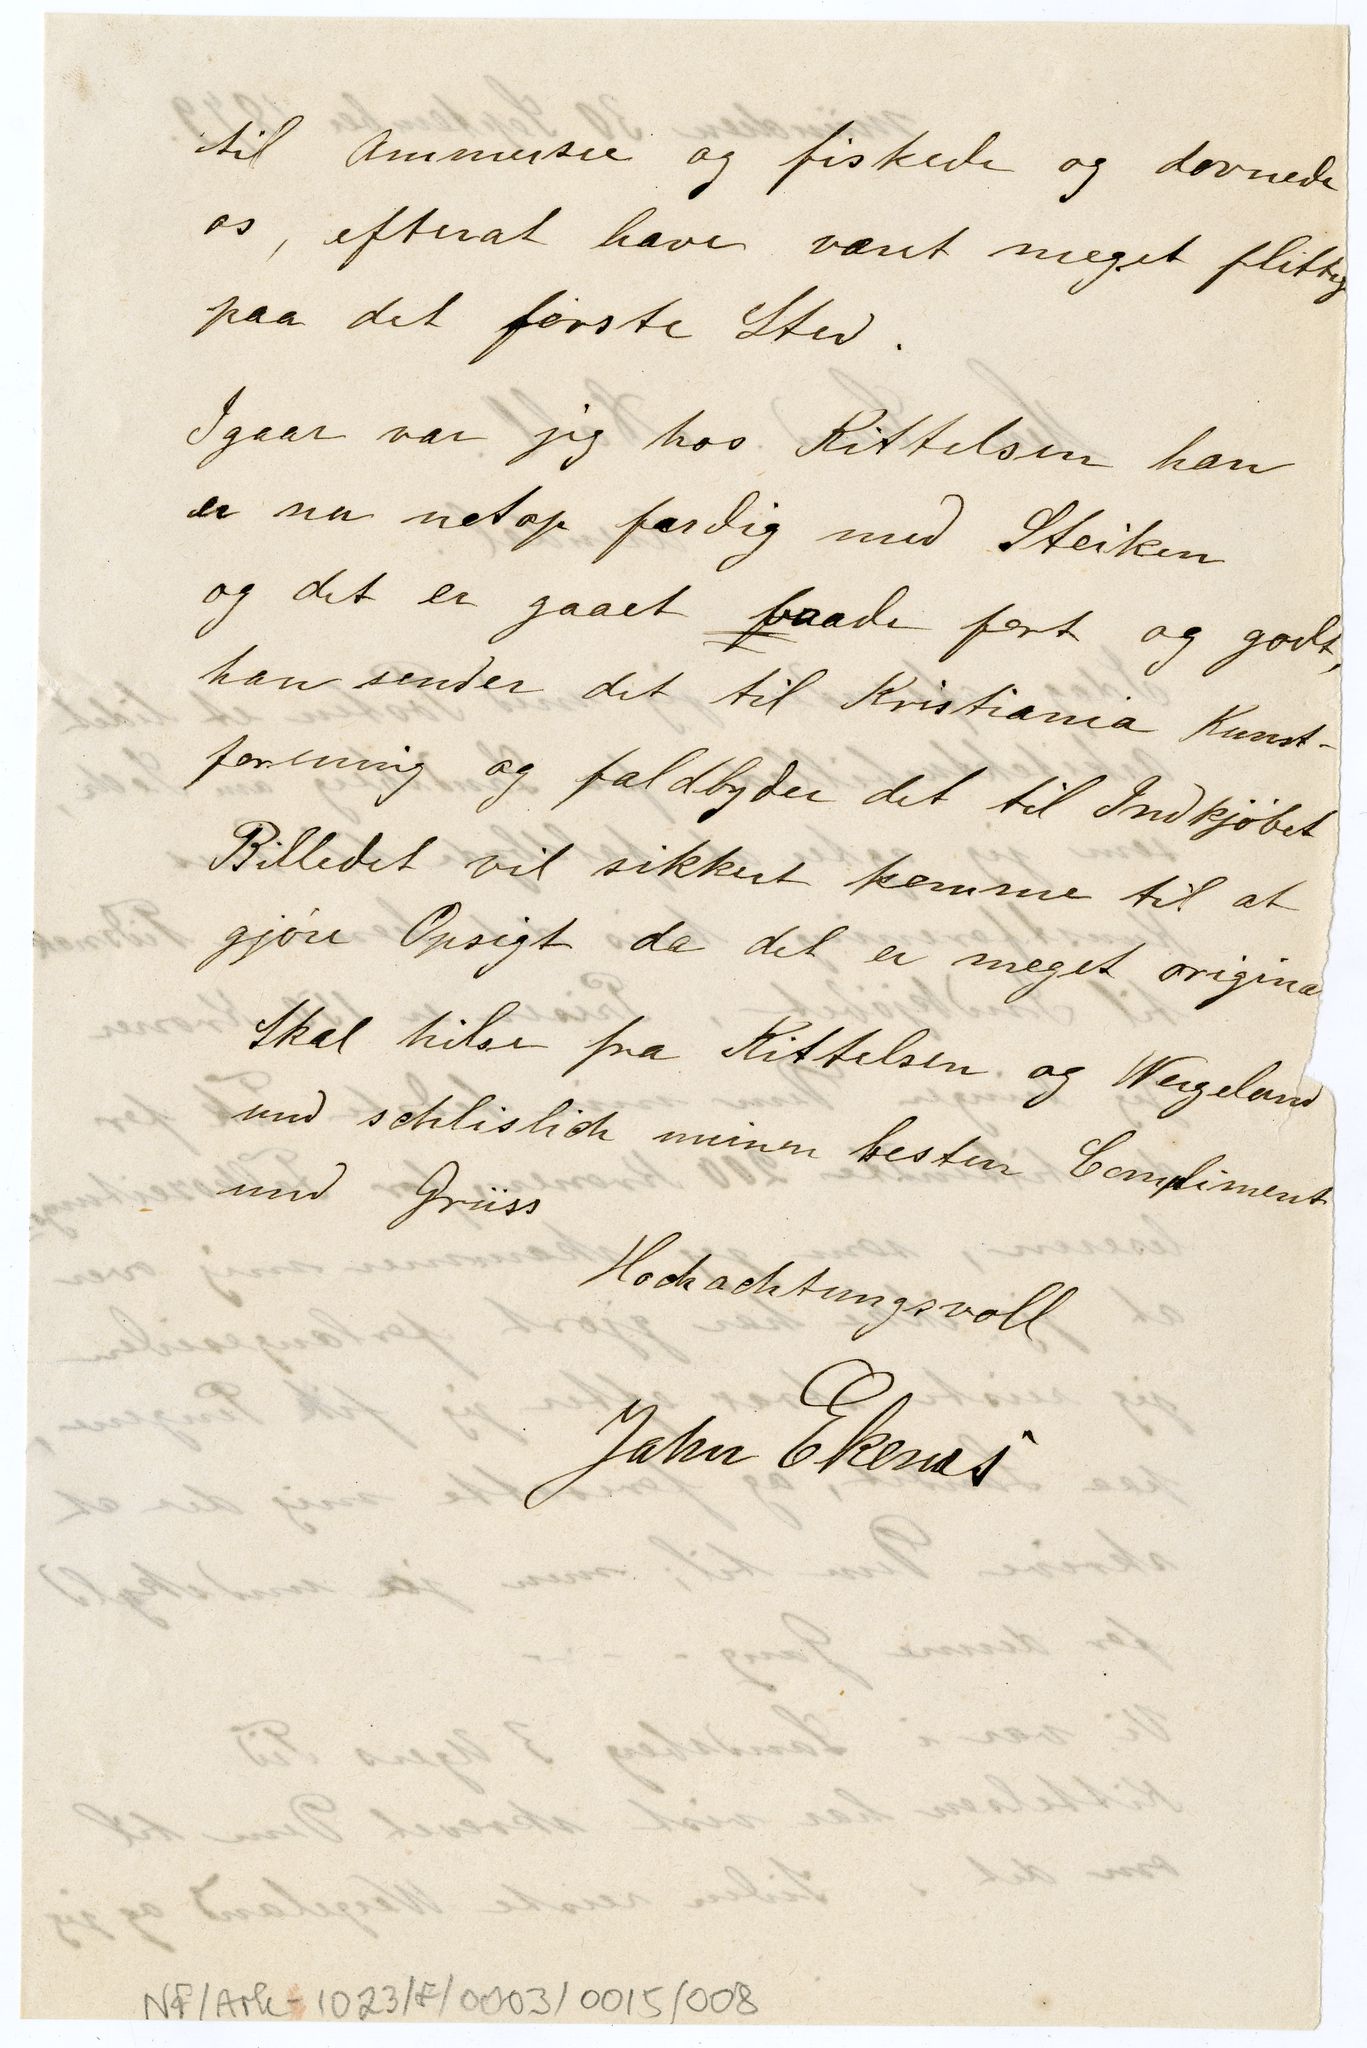 til Ammersee og fiskede og dovnede
os, efterat have været meget flittig
paa det første Sted.
Igaar var jeg hos Kittelsen han
er nu netop færdig med Steiken
og det er gaaet baade fort og godt,
han sender det til Kristiania Kunst-
forening og faldbyder det til Indkjöbet
Billedet vil sikkert komme til at
gjöre Opsigt da det er meget origina
Skal hilse fra Kittelsen og Wergeland
und schlislich meinen besten Compliment
und Grüss
Hochachtungsvoll
Jahn Ekenæs
NF/Ark-1023/F/0003/0015/008